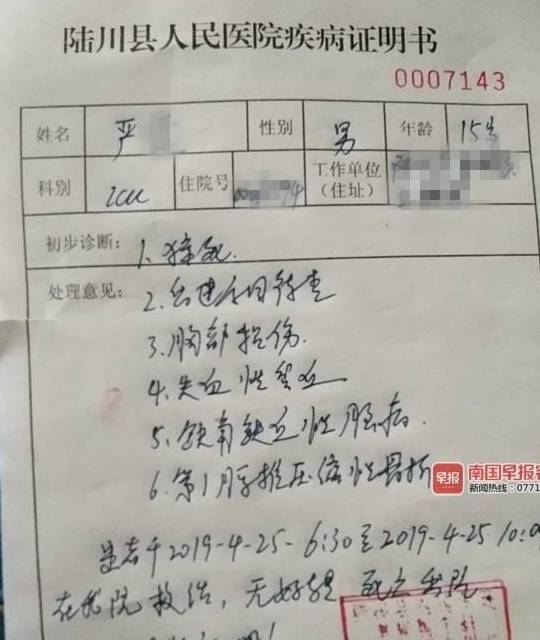 陆川县人民医院疾病证明书
0007143
姓名 严 性别 男 年龄 15岁
科别 ICU 住院号 工作单位（住址）
初步诊断： 1.猝死
处理意见： 2.
3.胸部损伤.
4.失血性
5.缺氧缺血性脑病.
6.第1腰椎压缩性骨折
早报 南国早报客
新闻热线：0771
患者于2019-4-25-6:30至2019-4-25 10:0
在我院救治，无好转 死亡出院.